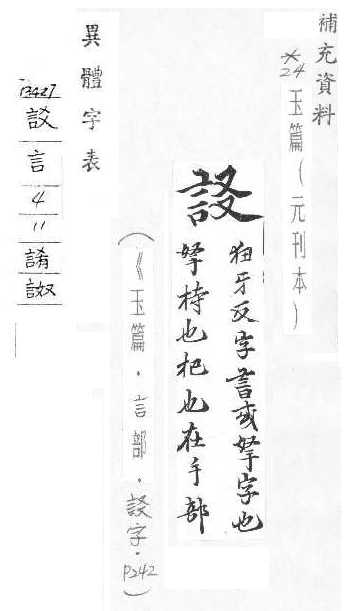 補充資料
※24 玉篇(元刊本)
訤
狃牙反字書或拏字也
拏持也把也在手部
(《玉篇.言部.訤字.P242)
異體字表
13427
訤
言
4
11
誵
詉